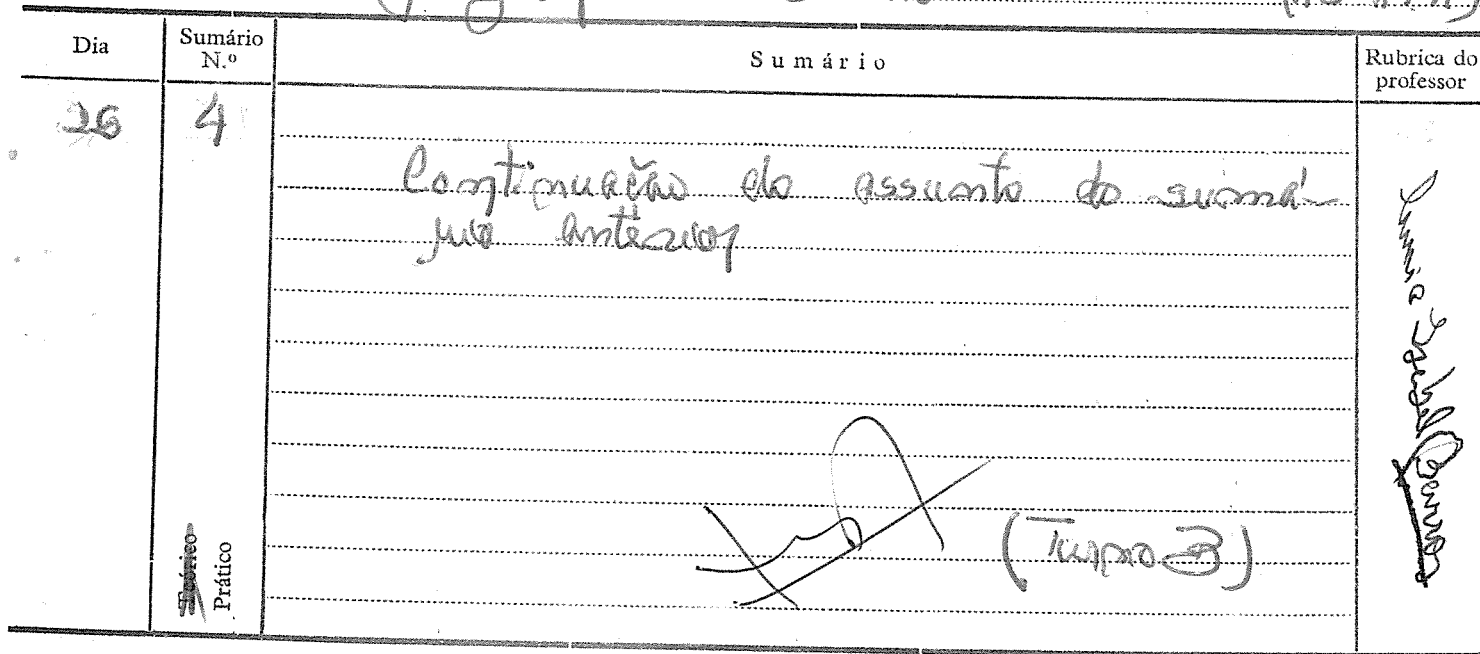 Dia
Sumário
N.º
Sumário
Rubrica do
professor
26
4
Continuação do assunto do sumá-
rio anterior
(Turno B)
Teórico
Prático
Isabel Barros